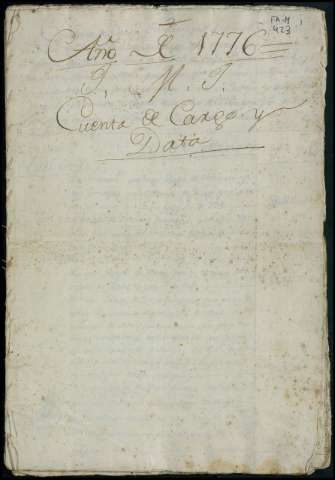 FA-M
423
Año de 1776
J. M. J.
Cuenta de Cargo y
Data